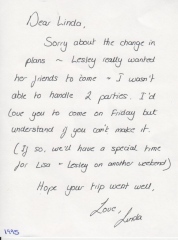 Dear Linda,
Sorry about the change in
plans ~ Lesley really wanted
her friends to come - I wasn't
able to handle 2 parties. I'd
love you to come on Friday but
understand if you can't make it.
(If so, we'd have a special time
for Lisa + Lesley on another weekend)
Hope your trip went well.
Love,
Linda
1995